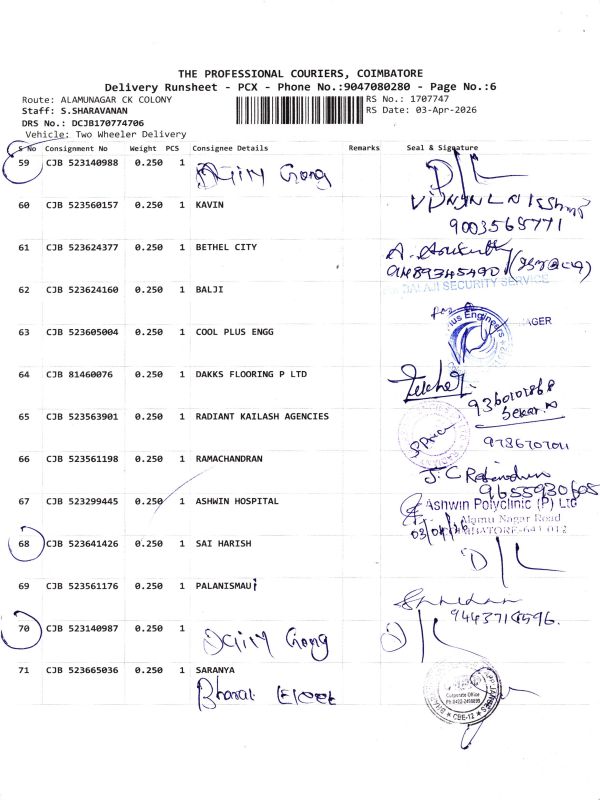 THE PROFESSIONAL COURIERS, COIMBATORE
Delivery Runsheet - PCX - Phone No.:9047080280 - Page No.:6
Route: ALAMUNAGAR CK COLONY RS No.: 1707747
Staff: S.SHARAVANAN RS Date: 03-Apr-2026
DRS No.: DCJB170774706
Vehicle: Two Wheeler Delivery
S No Consignment No Weight PCS Consignee Details Remarks Seal & Signature
59 CJB 523140988 0.250 1 D/L
60 CJB 523560157 0.250 1 KAVIN
9003568771
61 CJB 523624377 0.250 1 BETHEL CITY
9489345490
62 CJB 523624160 0.250 1 BALJI BALAJI SECURITY SERVICE
for
63 CJB 523605004 0.250 1 COOL PLUS ENGG Engineers
64 CJB 81460076 0.250 1 DAKKS FLOORING P LTD
9360101868
Sekar.N
65 CJB 523563901 0.250 1 RADIANT KAILASH AGENCIES
9786707011
66 CJB 523561198 0.250 1 RAMACHANDRAN
9655930605
67 CJB 523299445 0.250 1 ASHWIN HOSPITAL Ashwin Polyclinic (P) Ltd
Alamu Nagar Road
COIMBATORE-641 012
03/04/26
68 CJB 523641426 0.250 1 SAI HARISH D/L
69 CJB 523561176 0.250 1 PALANISMAUi
9443714596.
70 CJB 523140987 0.250 1 D/L
71 CJB 523665036 0.250 1 SARANYA
Bharat
Corporate Office
CBE-12